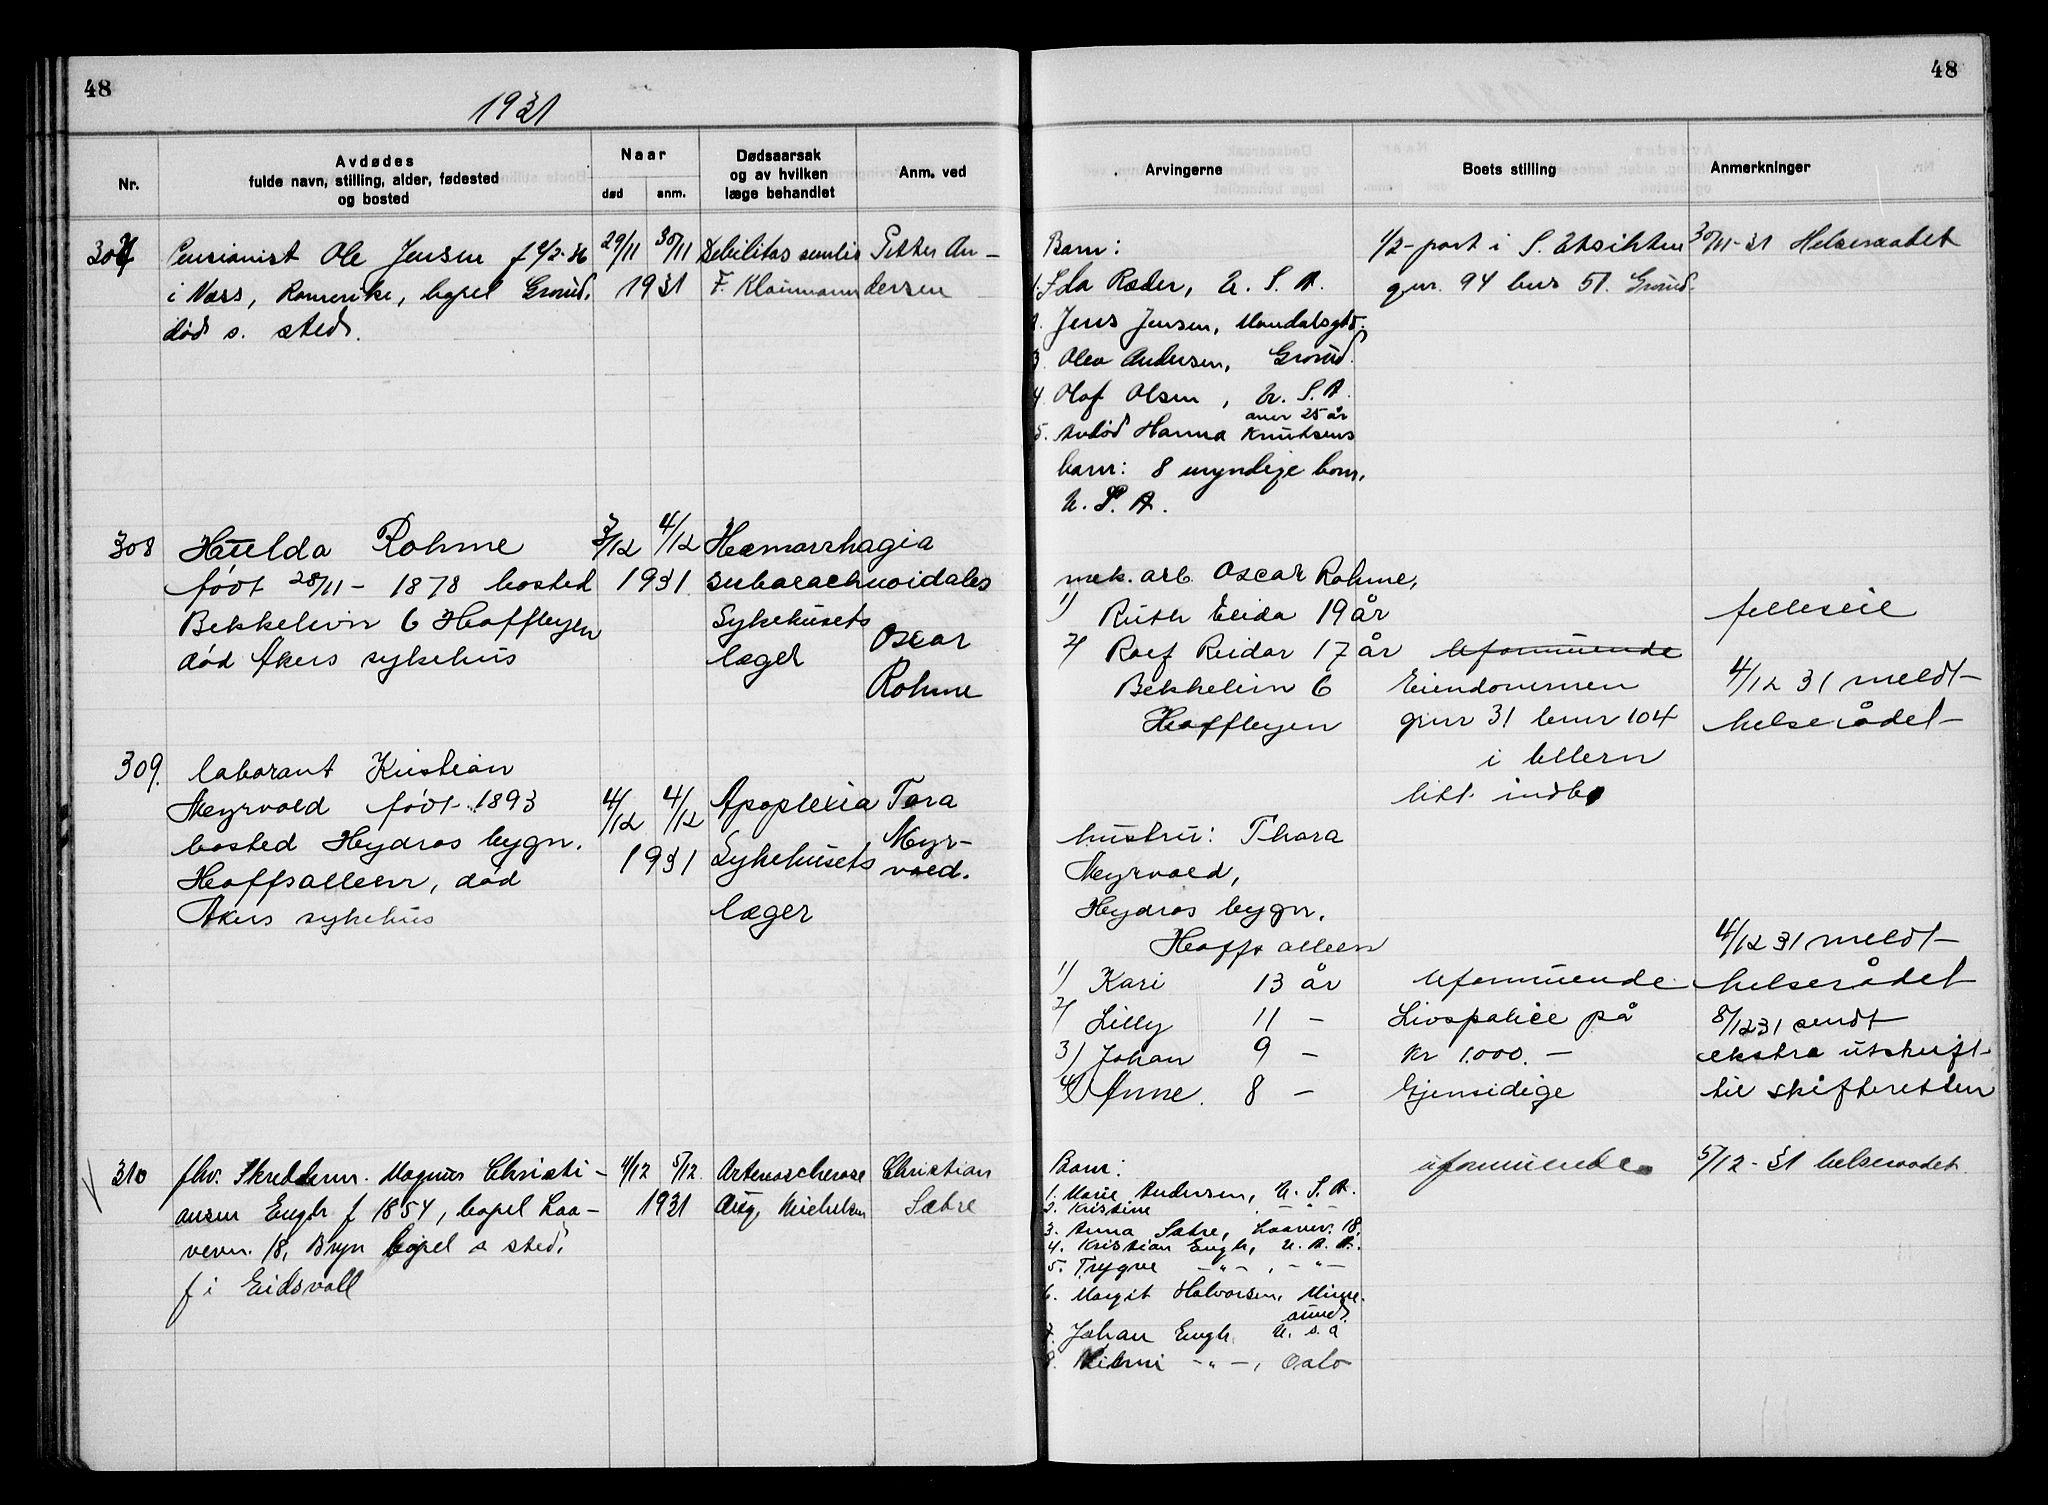 48
1931
Nr.
Avdødes
fulde navn, stilling, alder, fødested
og bosted
Naar
død
anm.
Dødsaarsak
og av hvilken
læge behandlet
Anm. ved
307
Pensionist Ole Jensen f 9/2-36
i Næss, Romerike, bopel Grorud,
død s. sted.
29/11 30/11
1931
Debilitas senilis
F. Klaumann
Petter An-
dersen
308
Hulda Rohme
født 28/11 - 1878 bosted
Bekkelivn 6 Hoffbyen
død Akers sykehus
3/12 4/12
1931
Hæmorrhagia
subarachnoidales
Sykehusets
læger
Oscar
Rohme
309.
laborant Kristian
Myrvold født 1893
bosted Hydros bygn.
Hoffsalleen, død
Akers sykehus
4/12 4/12
1931
Apoplexia
Sykehusets
læger
Tora
Myr-
vold.
310
fhv. Skredderm. Magnus Christi-
ansen Engh f 1854, bopel Laa-
vevn. 18, Bryn bopel s sted,
f i Eidsvoll
4/12 5/12
1931
Arteriosclerose
Aug. Michelsen
Christian
Sætre
48
Arvingerne
Boets stilling
Anmerkninger
Barn:
1. Ida Ræder, U. S. A.
2. Jens Jensen, Mandalsgt.
3. Olea Andersen, Grorud.
4. Olaf Olsen, U. S. A.
over 25 år
5. Avdød Hanna Knutsens
barn: 8 myndige barn,
U. S. A.
1/2-part i S. Utsikten
gnr. 94 bnr 51. Grorud.
30/11-31 Helseraadet
mek. arb. Oscar Rohme,
1) Ruth Elida 19 år
2) Rolf Reidar 17 år
Bekkelivn 6
Hoffbyen
Uformuende
Eiendommen
gnr 31 bnr 104
i Ullern
litt indbo
felleseie
4/12 31 meldt
helserådet
hustru: Thora
Myrvold,
Hydros bygn.
Hoffs alleen
1) Kari 13 år
2) Lilly 11 -
3) Johan 9 -
4) Anne. 8 -
Uformuende
Livspolice på
Kr 1.000. -
Gjensidige
4/12 31 meldt
helserådet
8/12 31 sendt
ekstra utskrift
til skifteretten
Barn:
1. Marie Andersen, U. S. A.
2. Kristine - " -
3. Anna Sætre, Laavev. 18.
4. Kristian Engh, U. S. A.
5. Trygve - " - , - " -
6. Margit Halvorsen, Minne-
sund.
7. Johan Engh U. S. A
8. Wilmi - " - , Oslo
uformuende
5/12-31 helseraadet.